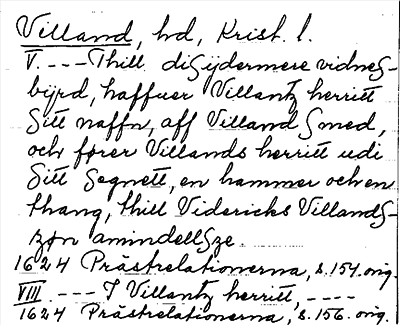 Villand, hd, Krist. l.
V. --- Thill diSijdermere vidneS-
bijrd, haffuer Villantz herritt
Sitt naffn, aff Villand Smed,
och fører Villands herritt udi
Sitt Segnett, en hammer och en
thang, thill Videricks VillandS-
zøn amindellSze.
1624 Prästrelationerna, s. 154. orig.
VIII. --- I Villantz herritt, ----
1624 Prästrelationerna, s. 156. orig.